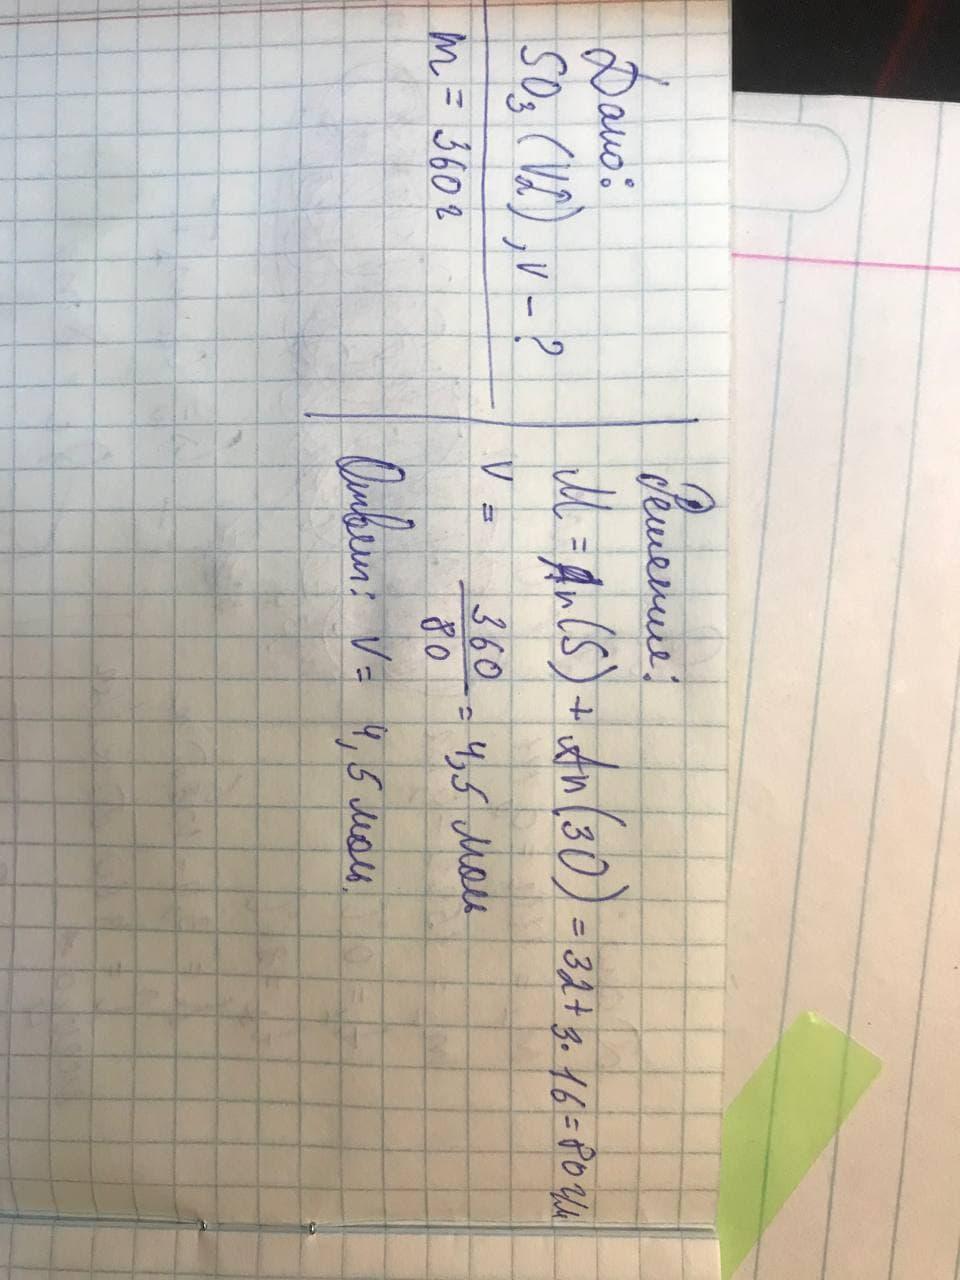 Дано:
SO3 (V2), ν - ?
m = 360 г
Решение:
M = Ar(S) + Ar(3O) = 32 + 3 · 16 = 80 г/м
ν = 360/80 = 4,5 моль
Ответ: ν = 4,5 моль.